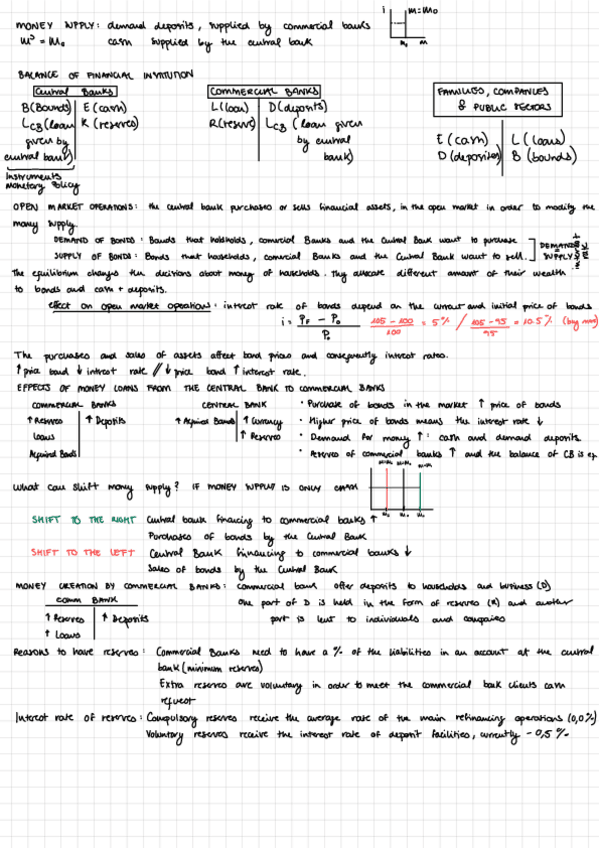 MONEY SUPPLY: demand deposits, supplied by commercial banks
Mˢ = M₀ cash supplied by the central bank
i M=M₀
M₀ M
BALANCE OF FINANCIAL INSTITUTION
Central Banks
B (Bounds) E (cash)
L_CB (loan given by central bank) R (reserves)
Instruments
Monetary Policy
COMMERCIAL BANKS
L (loan) D (deposits)
R (reserve) L_CB (loan given by central bank)
FAMILIES, COMPANIES & PUBLIC SECTORS
E (cash) L (loans)
D (deposites) B (bounds)
OPEN MARKET OPERATIONS: the central bank purchases or sells financial assets, in the open market in order to modify the
money supply.
DEMAND OF BONDS: Bonds that households, comercial Banks and the Central Bank want to purchase
SUPPLY OF BONDS: Bonds that households, comercial Banks and the Central Bank want to sell.
DEMAND = SUPPLY interest rate
The equilibrium changes the decisions about money of households. They allocate different amount of their wealth
to bonds and cash + deposits.
effect on open market operations: interest rate of bonds depend on the current and initial price of bonds
i = PF - P0 / P0 105 - 100 / 100 = 5% / 105 - 95 / 95 = 10.5% (buy now)
The purchases and sales of assets affect bond prices and consequently interest rates.
↑ price bond ↓ interest rate // ↓ price bond ↑ interest rate.
EFFECTS OF MONEY LOANS FROM THE CENTRAL BANK TO COMMERCIAL BANKS
COMMERCIAL BANKS
↑ Reserves ↑ Deposits
Loans
Acquired Bonds
CENTRAL BANK
↑ Acquired Bonds ↑ Currency
↑ Reserve
• Purchase of bonds in the market ↑ price of bonds
• Higher price of bonds means the interest rate ↓
• Demand for money ↑: cash and demand deposits.
• Reserves of commercial banks ↑ and the balance of CB is eq.
What can shift money supply? IF MONEY SUPPLY IS ONLY CASH
SHIFT TO THE RIGHT Central bank financing to commercial banks ↑
Purchases of bonds by the Central Bank
SHIFT TO THE LEFT Central Bank financing to commercial banks ↓
Sales of bonds by the Central Bank
MONEY CREATION BY COMMERCIAL BANKS: commercial bank offer deposits to households and business (D)
one part of D is held in the form of reserves (R) and another
part is lent to individuals and companies
COMM BANK
↑ Reserves ↑ Deposits
↑ Loans
Reasons to have reserves: Commercial Banks need to have a % of the liabilities in an account at the central
bank (minimum reserves)
Extra reserves are voluntary in order to meet the commercial bank clients cash
request
Interest rate of reserves: Compulsory reserves receive the average rate of the main refinancing operations (0,0%)
Voluntary reserves receive the interest rate of deposit facilities, currently -0,5%.